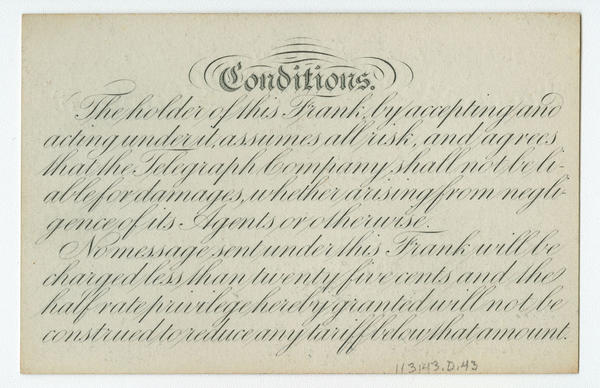 Conditions.
The holder of this Frank, by accepting and
acting under it, assumes all risk, and agrees
that the Telegraph Company shall not be li-
able for damages, whether arising from negli-
gence of its Agents or otherwise.
No message sent under this Frank will be
charged less than twenty five cents and the
half rate privilege hereby granted will not be
construed to reduce any tariff below that amount.
113143.D.43